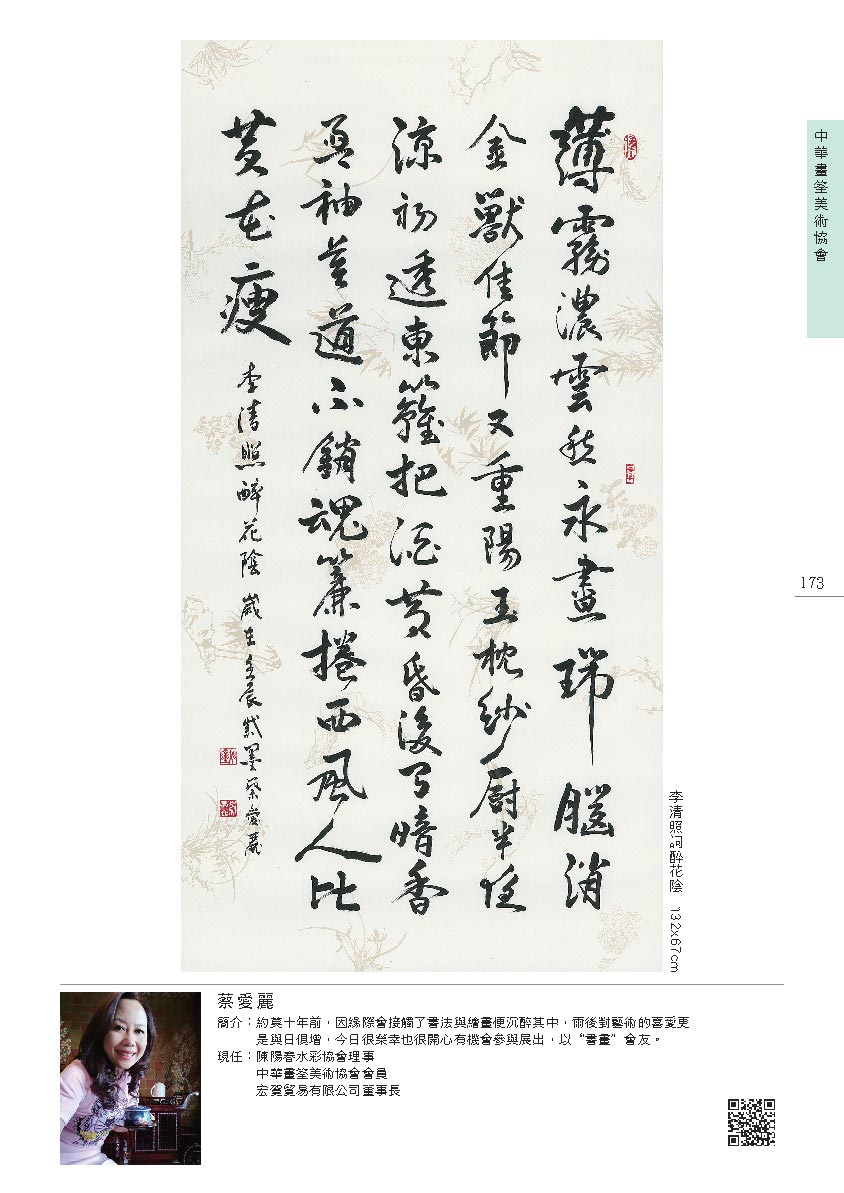 薄霧濃雲愁永晝瑞腦消
金獸佳節又重陽玉枕紗厨半夜
涼初透東籬把酒黃昏後有暗香
盈袖莫道不銷魂簾捲西風人比
黃花瘦
李清照醉花陰 歲在壬辰墨蔡愛麗
中華畫筌美術協會
173
李清照詞醉花陰 132x67cm
蔡愛麗
簡介：約莫十年前，因緣際會接觸了書法與繪畫便沉醉其中，爾後對藝術的喜愛更
是與日俱增，今日很榮幸也很開心有機會參與展出，以“書畫”會友。
現任：陳陽春水彩協會理事
中華畫筌美術協會會員
宏賀貿易有限公司董事長